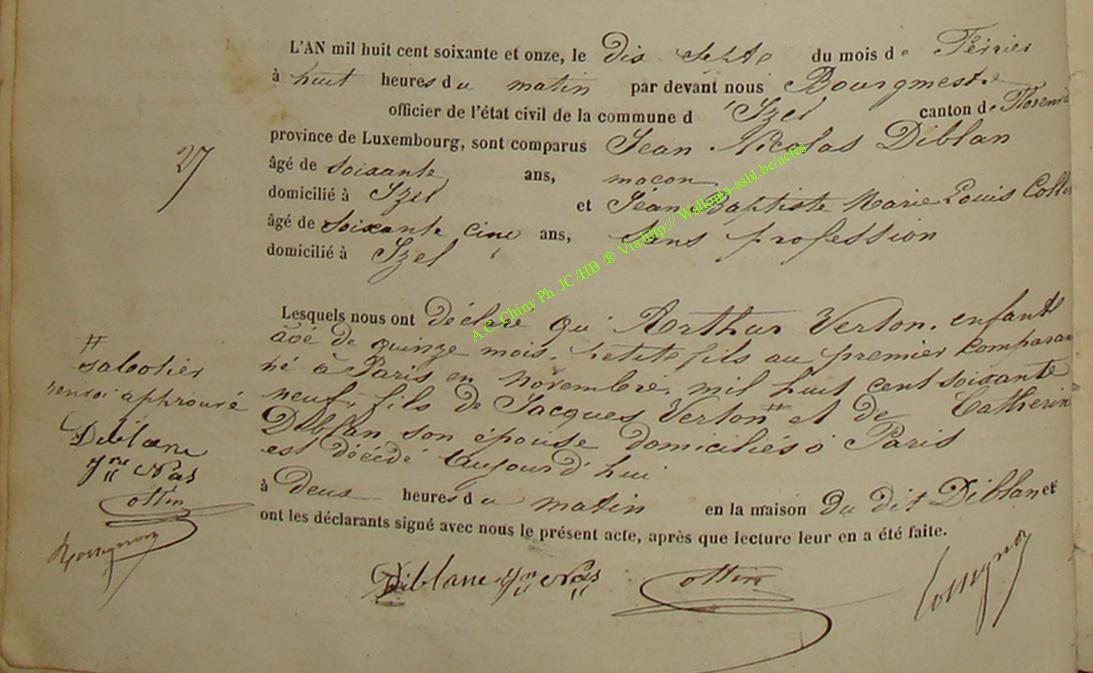 L'AN mil huit cent soixante et onze, le dix sept du mois de Février
à huit heures du matin par devant nous Bourgmestre
officier de l'état civil de la commune d'Izel canton de Floren
province de Luxembourg, sont comparus Jean Nicolas Diblan
27
âgé de soixante ans, maçon
domicilié à Izel et Jean Baptiste Marie Louis
âgé de soixante cinq ans, sans profession
domicilié à Izel
Lesquels nous ont déclaré qu'Arthur Verton, enfant
âgé de quinze mois, petit fils au premier comparan
né à Paris en novembre mil huit cent soixante
neuf, fils de Jacques Verton # et de Catherin
Diblan son épouse domiciliés à Paris
est décédé aujourd'hui
à deux heures du matin en la maison du dit Diblan et
ont les déclarants signé avec nous le présent acte, après que lecture leur en a été faite.
# sabotier
renvoi approuvé
Diblane
Jn Nas
ottin
Rossignon
Diblane Jn Nas ottin Rossignon
A.C. Chiny Ph. JC /HB ® Via http:// Wallonia-asbl.be/actes